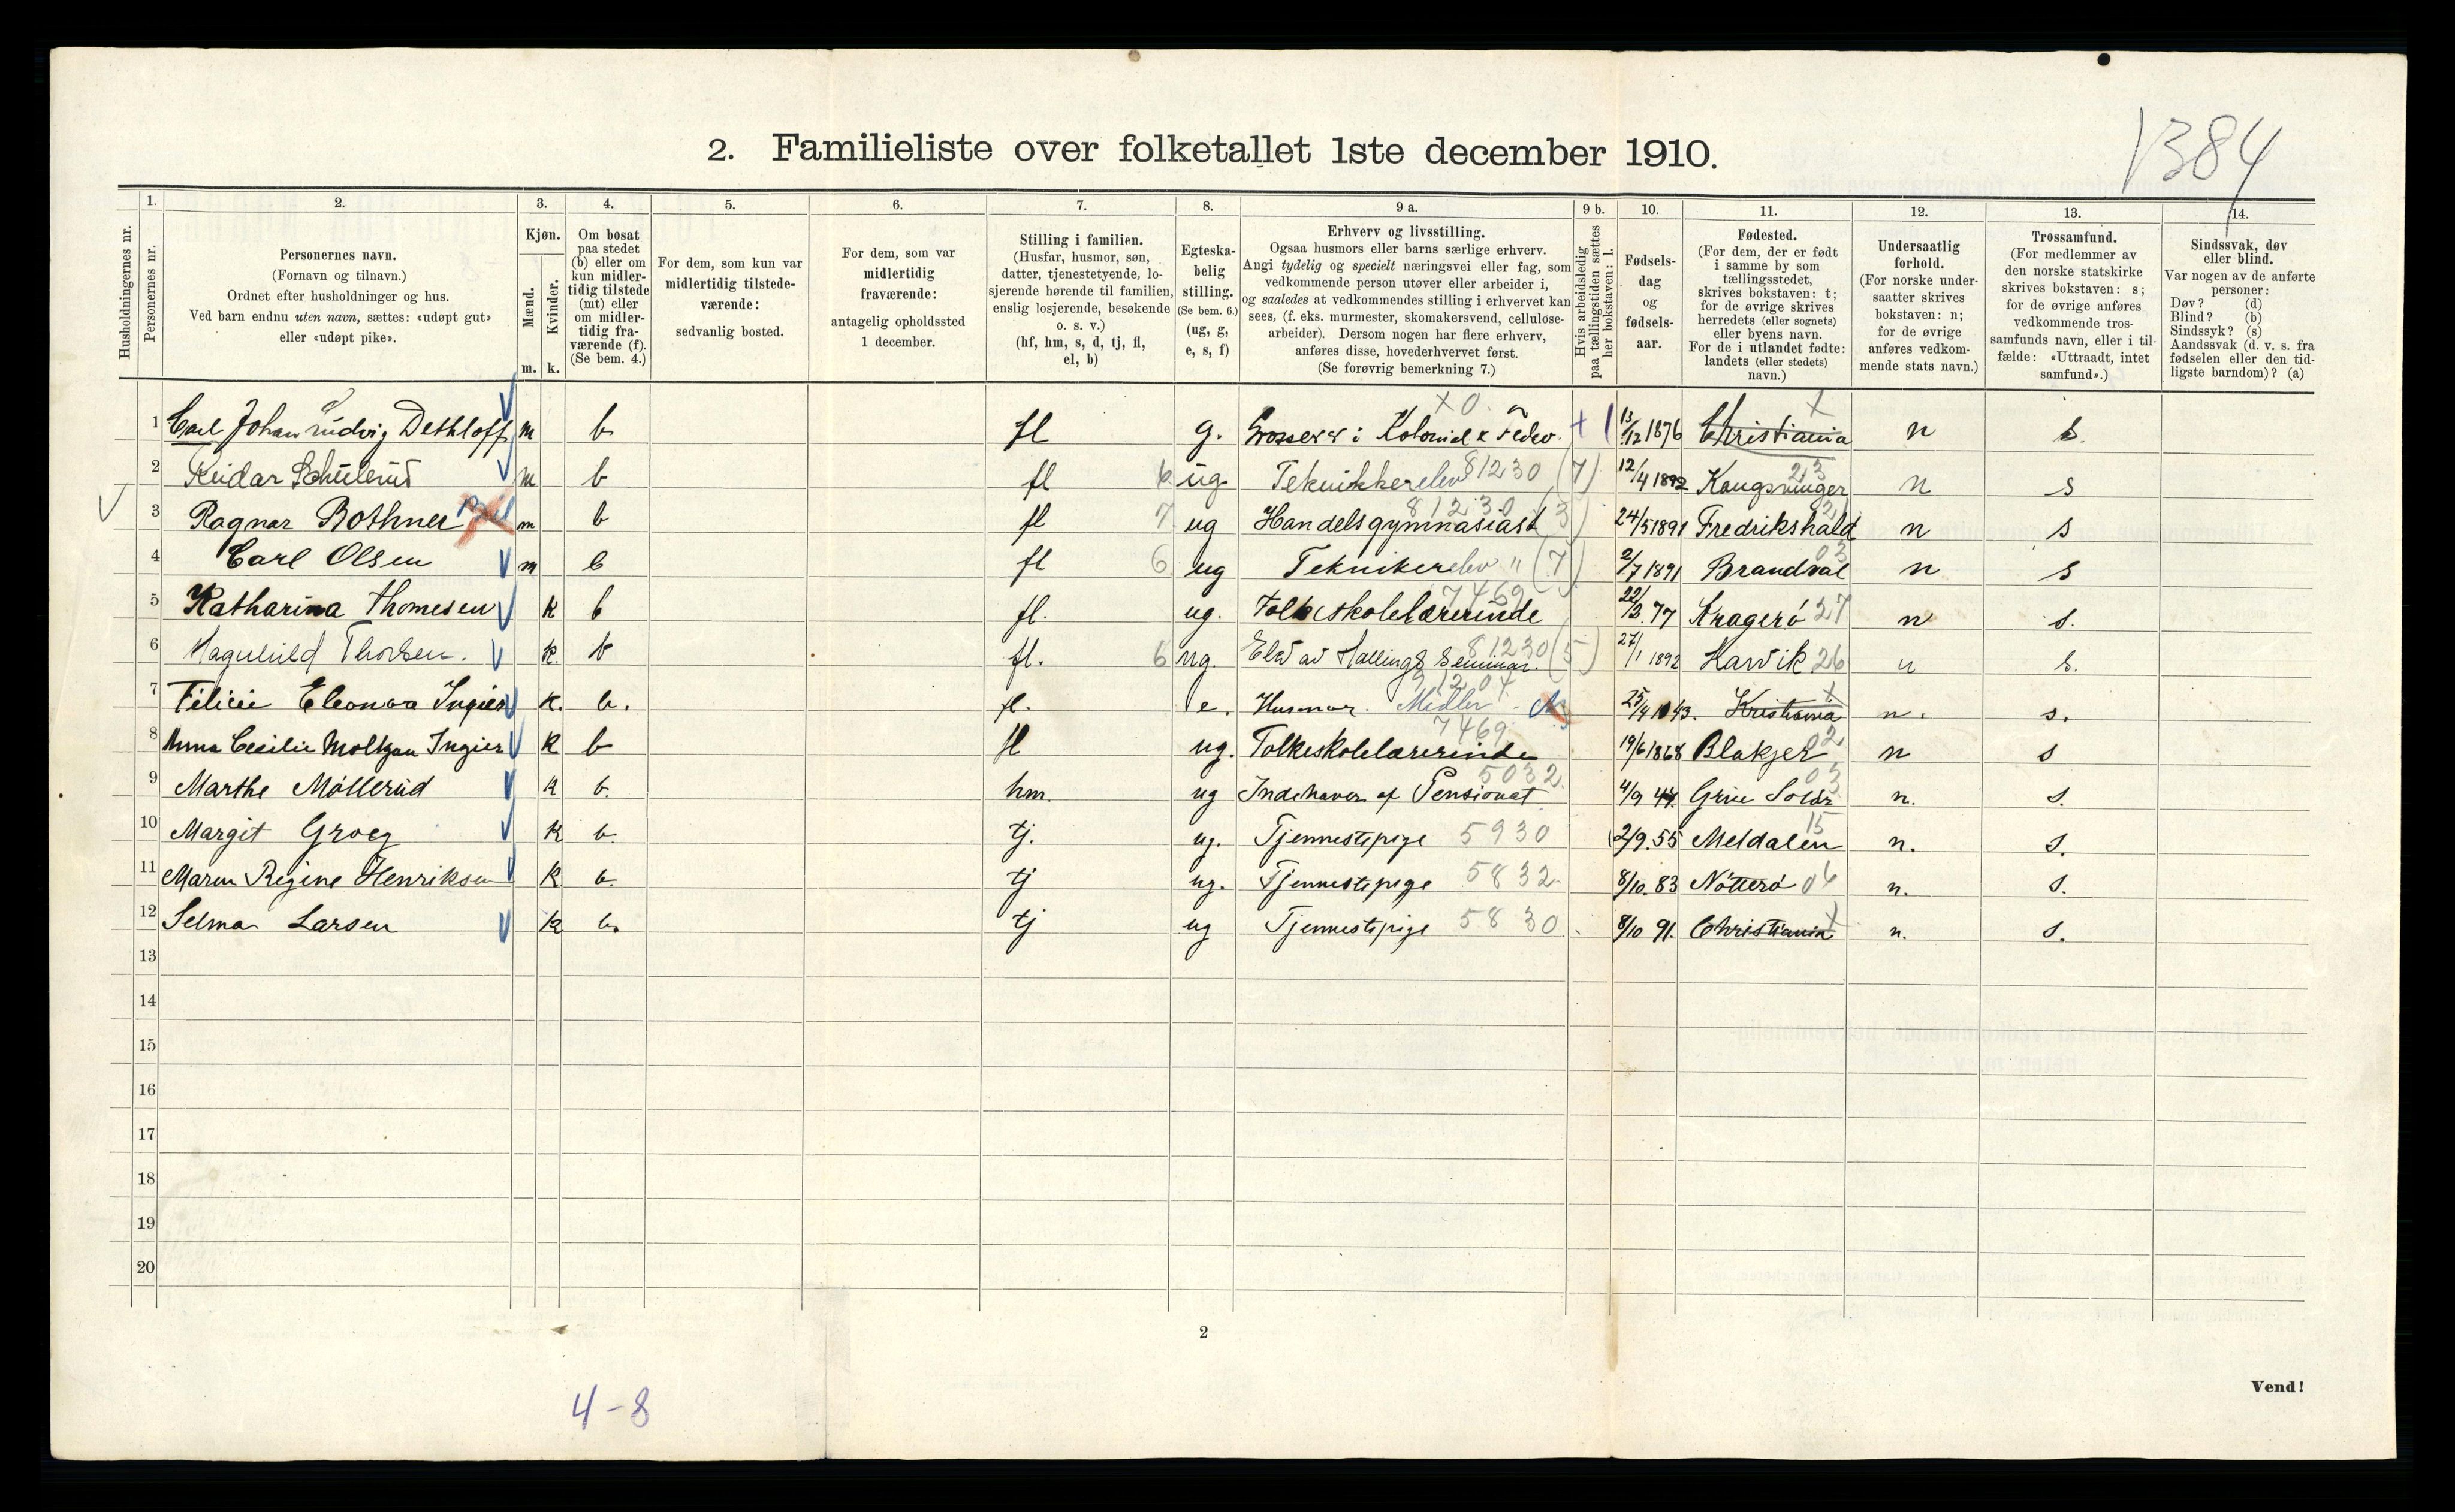 1384
2. Familieliste over folketallet 1ste december 1910.
1. 2. 3. 4. 5. 6. 7. 8. 9 a. 9 b. 10. 11. 12. 13. 14.
Husholdningernes nr.
Personernes nr.
Personernes navn.
(Fornavn og tilnavn.)
Ordnet efter husholdninger og hus.
Ved barn endnu uten navn, sættes: «udøpt gut»
eller «udøpt pike».
Kjøn.
Mænd.
Kvinder.
m. k.
Om bosat
paa stedet
(b) eller om
kun midler-
tidig tilstede
(mt) eller
om midler-
tidig fra-
værende (f).
(Se bem. 4.)
For dem, som kun var
midlertidig tilstede-
værende:
sedvanlig bosted.
For dem, som var
midlertidig
fraværende:
antagelig opholdssted
1 december.
Stilling i familien.
(Husfar, husmor, søn,
datter, tjenestetyende, lo-
sjerende hørende til familien,
enslig losjerende, besøkende
o. s. v.)
(hf, hm, s, d, tj, fl,
el, b)
Egteska-
belig
stilling.
(Se bem. 6.)
(ug, g,
e, s, f)
Erhverv og livsstilling.
Ogsaa husmors eller barns særlige erhverv.
Angi tydelig og specielt næringsvei eller fag, som
vedkommende person utøver eller arbeider i,
og saaledes at vedkommendes stilling i erhvervet kan
sees, (f. eks. murmester, skomakersvend, cellulose-
arbeider). Dersom nogen har flere erhverv,
anføres disse, hovederhvervet først.
(Se forøvrig bemerkning 7.)
Hvis arbeidsledig
paa tællingstiden sættes
her bokstaven: l.
Fødsels-
dag
og
fødsels-
aar.
Fødested.
(For dem, der er født
i samme by som
tællingsstedet,
skrives bokstaven: t;
for de øvrige skrives
herredets (eller sognets)
eller byens navn.
For de i utlandet fødte:
landets (eller stedets)
navn.)
Undersaatlig
forhold.
(For norske under-
saatter skrives
bokstaven: n;
for de øvrige
anføres vedkom-
mende stats navn.)
Trossamfund.
(For medlemmer av
den norske statskirke
skrives bokstaven: s;
for de øvrige anføres
vedkommende tros-
samfunds navn, eller i til-
fælde: «Uttraadt, intet
samfund».)
Sindssvak, døv
eller blind.
Var nogen av de anførte
personer:
Døv? (d)
Blind? (b)
Sindssyk? (s)
Aandssvak (d. v. s. fra
fødselen eller den tid-
ligste barndom)? (a)
1 Carl Johan Ludvig Dethloff m b fl g. Grosserer i Kolonial & Fedev. 13/12 1876 Christiania n s.
2 Reidar Schulerud m b fl 6 ug. Teknikkerelev 81230 (7) 12/4 1892 Kongsvinger 23 n s
3 Ragnar Bothner m b fl 7 ug Handelsgymnasiast 81230 3) 24/5 1891 Fredrikshald n s
4 Carl Olsen m b fl 6 ug Teknikerelev " (7) 2/7 1891 Brandval 03 n s
5 Katharina Thomesen k b fl. ug. Folkeskolelærerinde 7469 22/3 77 Kragerö 27 n s.
6 Thorsen. k. b fl. 6 ug. Elev av Hallings Seminar. 81230 (5) 27/1 1892 26 n s.
7 Felicie Eleonora Ingier k. b. fl. e. Husmor. Midler 91204 25/4 43. Kristiania n. s.
8 Anna Cecilie Moltzau Ingier k b fl ug. Folkeskolelærerinde 7469 19/6 1868 Blakjer 02 n s
9 Marthe Möllerud k b. hm. ug Indehaver af Pensionat 5032 4/9 44. Grue Solør 03 n. s.
10 Margit Groeg k b tj. ug. Tjennestepige 5930 2/9. 55 Meldalen 15 n. s.
11 Maren Regine Henriksen k b. tj ug. Tjennestepige 5832 8/10. 83 Nötterö 06 n. s.
12 Selma Larsen k b. tj ug Tjennestepige 5830 8/10 91. Christiania n. s.
13
14
15
16
17
18
19
20
2
Vend!
4-8